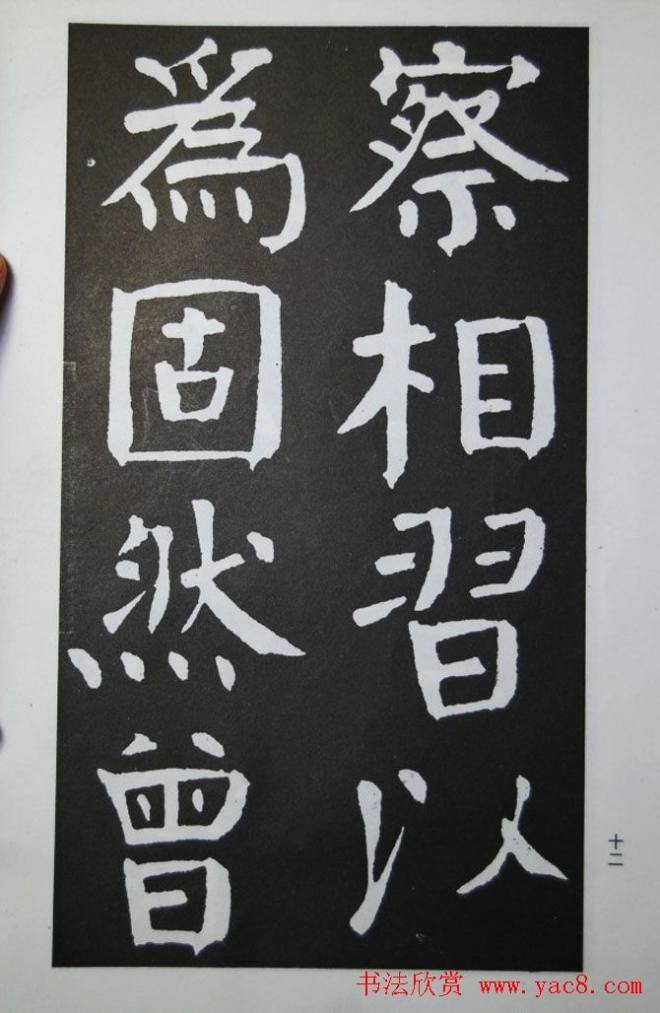 察相習以
為固然曾
十二
书法欣赏 www.yac8.com